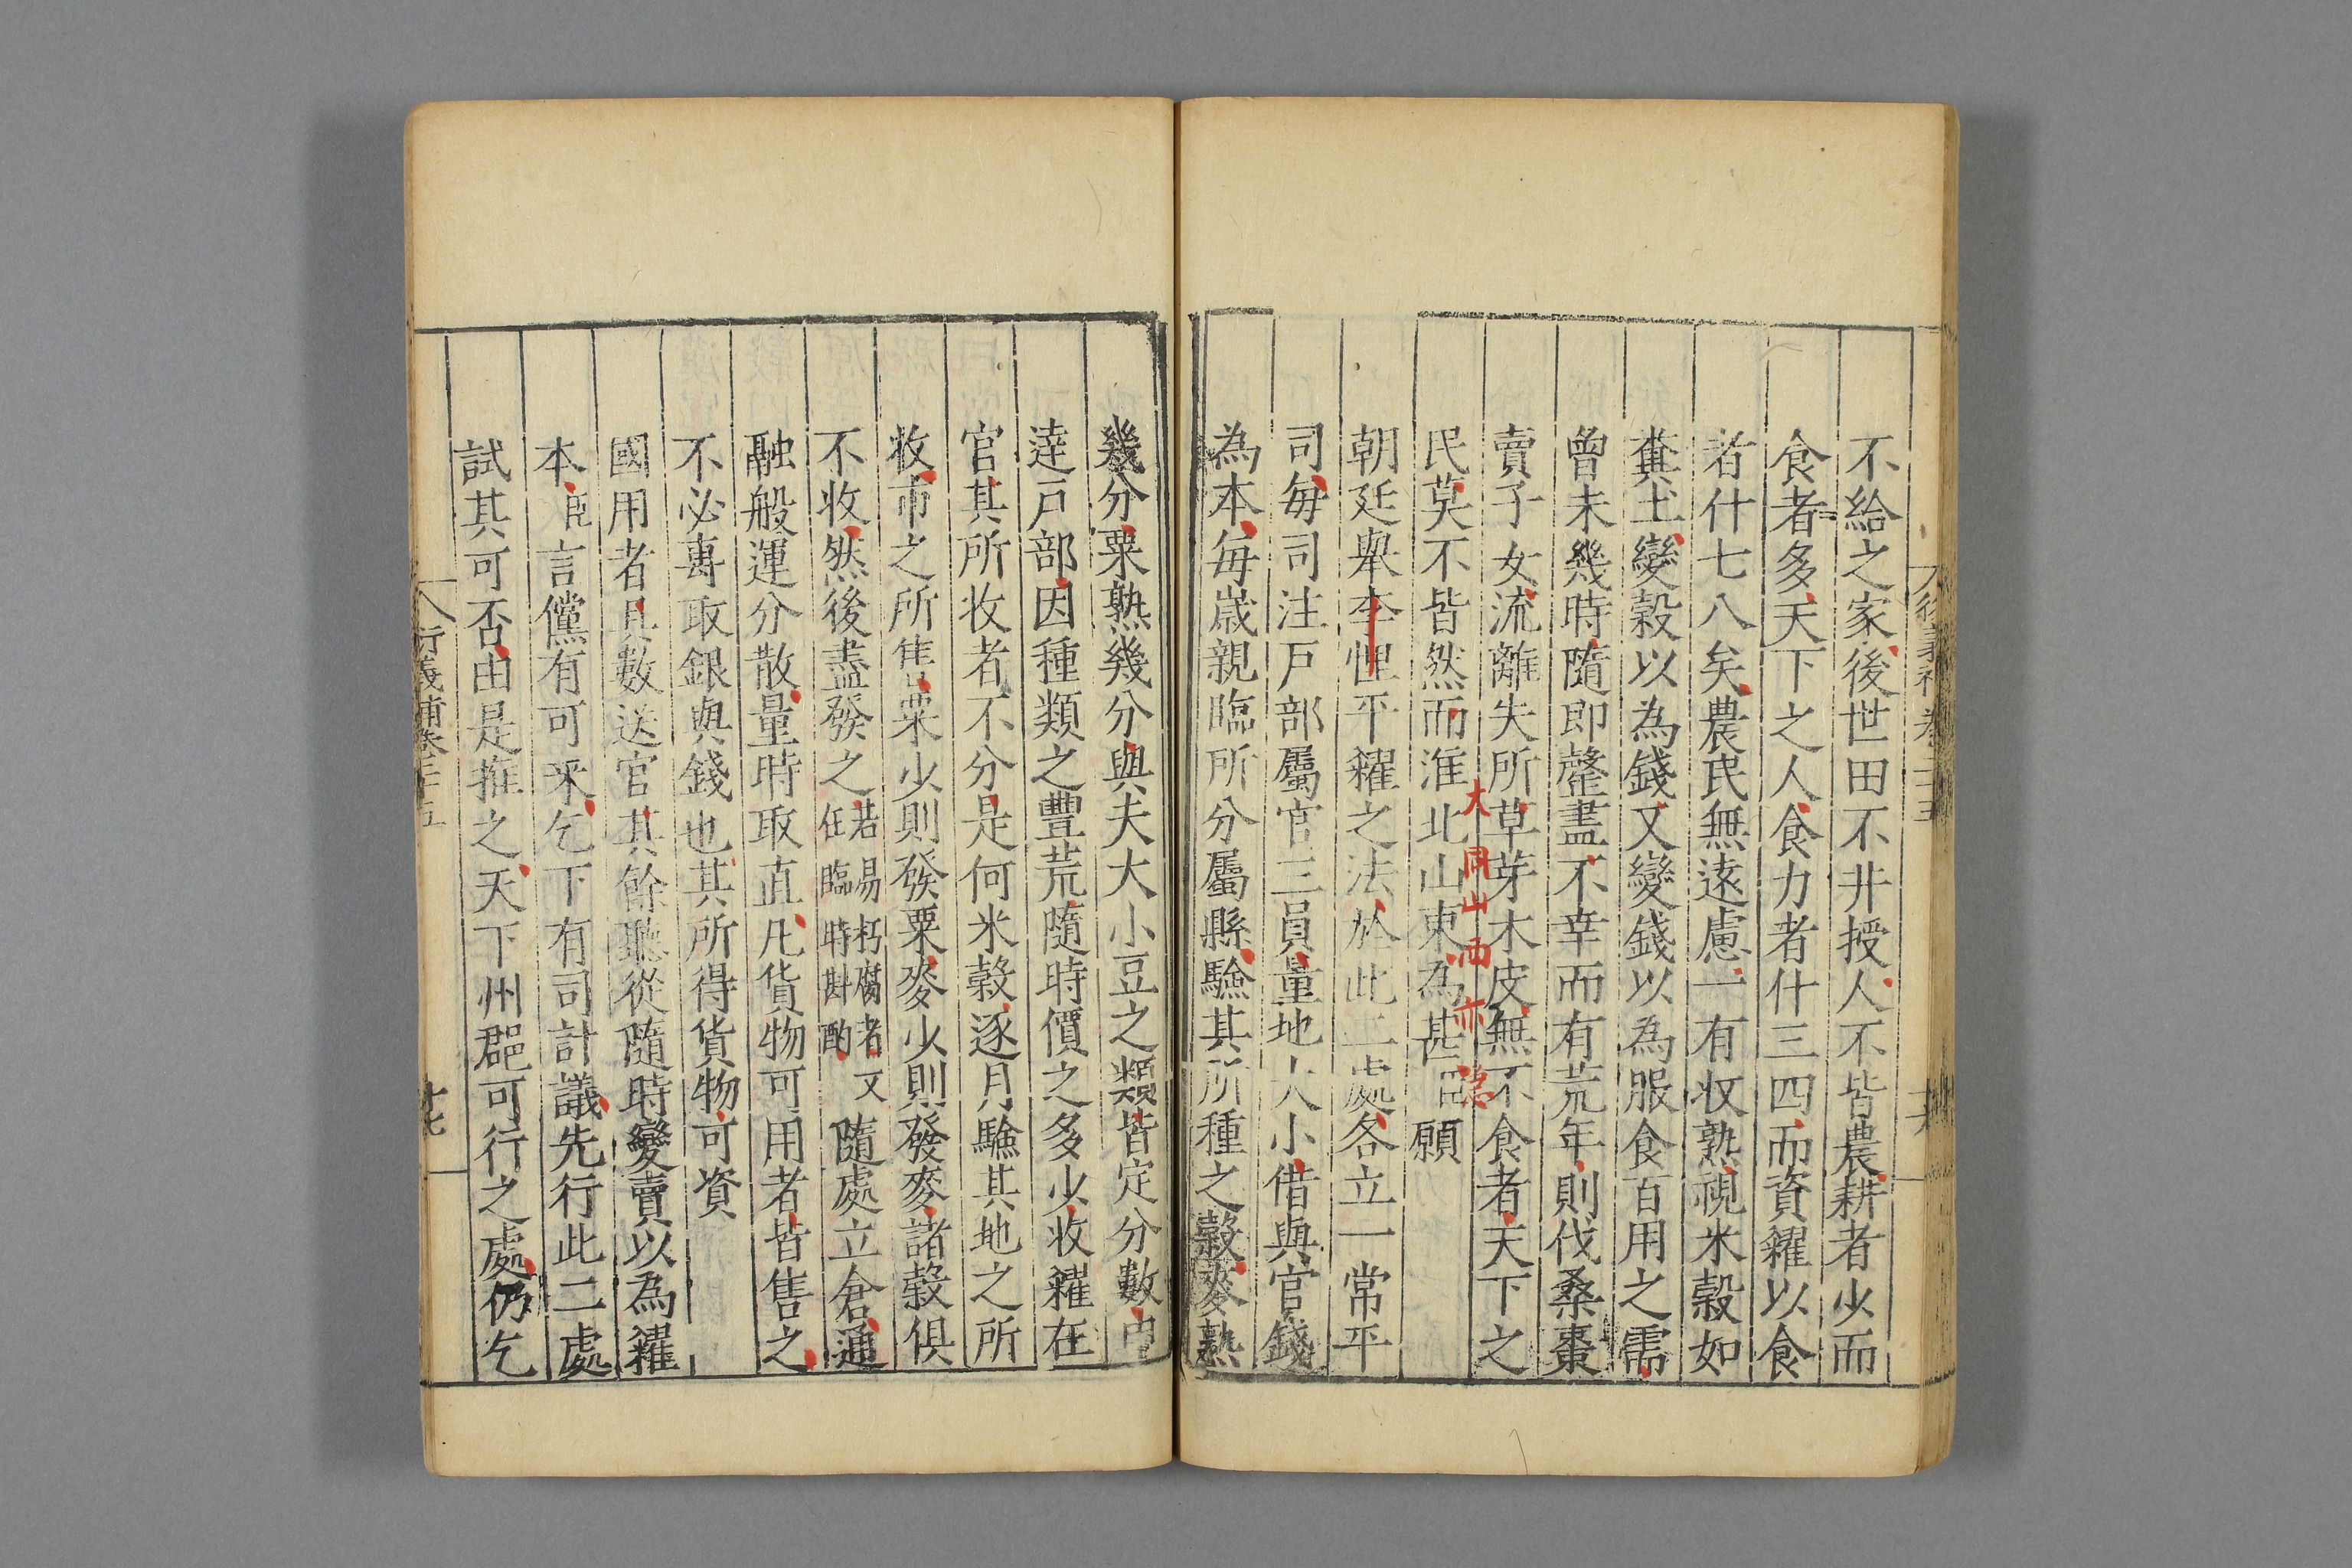 不給之家後世田不井授人不皆農耕者少而
食者多天下之人食力者什三四而資糴以食
者什七八矣農民無遠慮一有收熟視米穀如
糞土變穀以為錢又變錢以為服食百用之需
曾未幾時隨即罄盡不幸而有荒年則伐桑棗
賣子女流離失所草芽木皮無不食者天下之
大同山西亦
民莫不皆然而淮北山東為甚臣願
朝廷舉李悝平糴之法於此二處各立一常平
司每司注戶部屬官三員量地大小借與官錢
為本每歲親臨所分屬縣驗其所種之穀麥熟
幾分粟熟幾分與夫大小豆之類皆定分數申
達戶部因種類之豐荒隨時價之多少收糴在
官其所收者不分是何米穀逐月驗其地之所
收市之所售粟少則發粟麥少則發麥諸穀俱
不收然後盡發之若易朽腐者又任臨時斟酌隨處立倉通
融般運分散量時取直凡貨物可用者皆售之
不必專取銀與錢也其所得貨物可資
國用者具數送官其餘聽從隨時變賣以為糴
本臣言儻有可采乞下有司計議先行此二處
試其可否由是推之天下州郡可行之處仍乞
衍義補卷二十五
十七